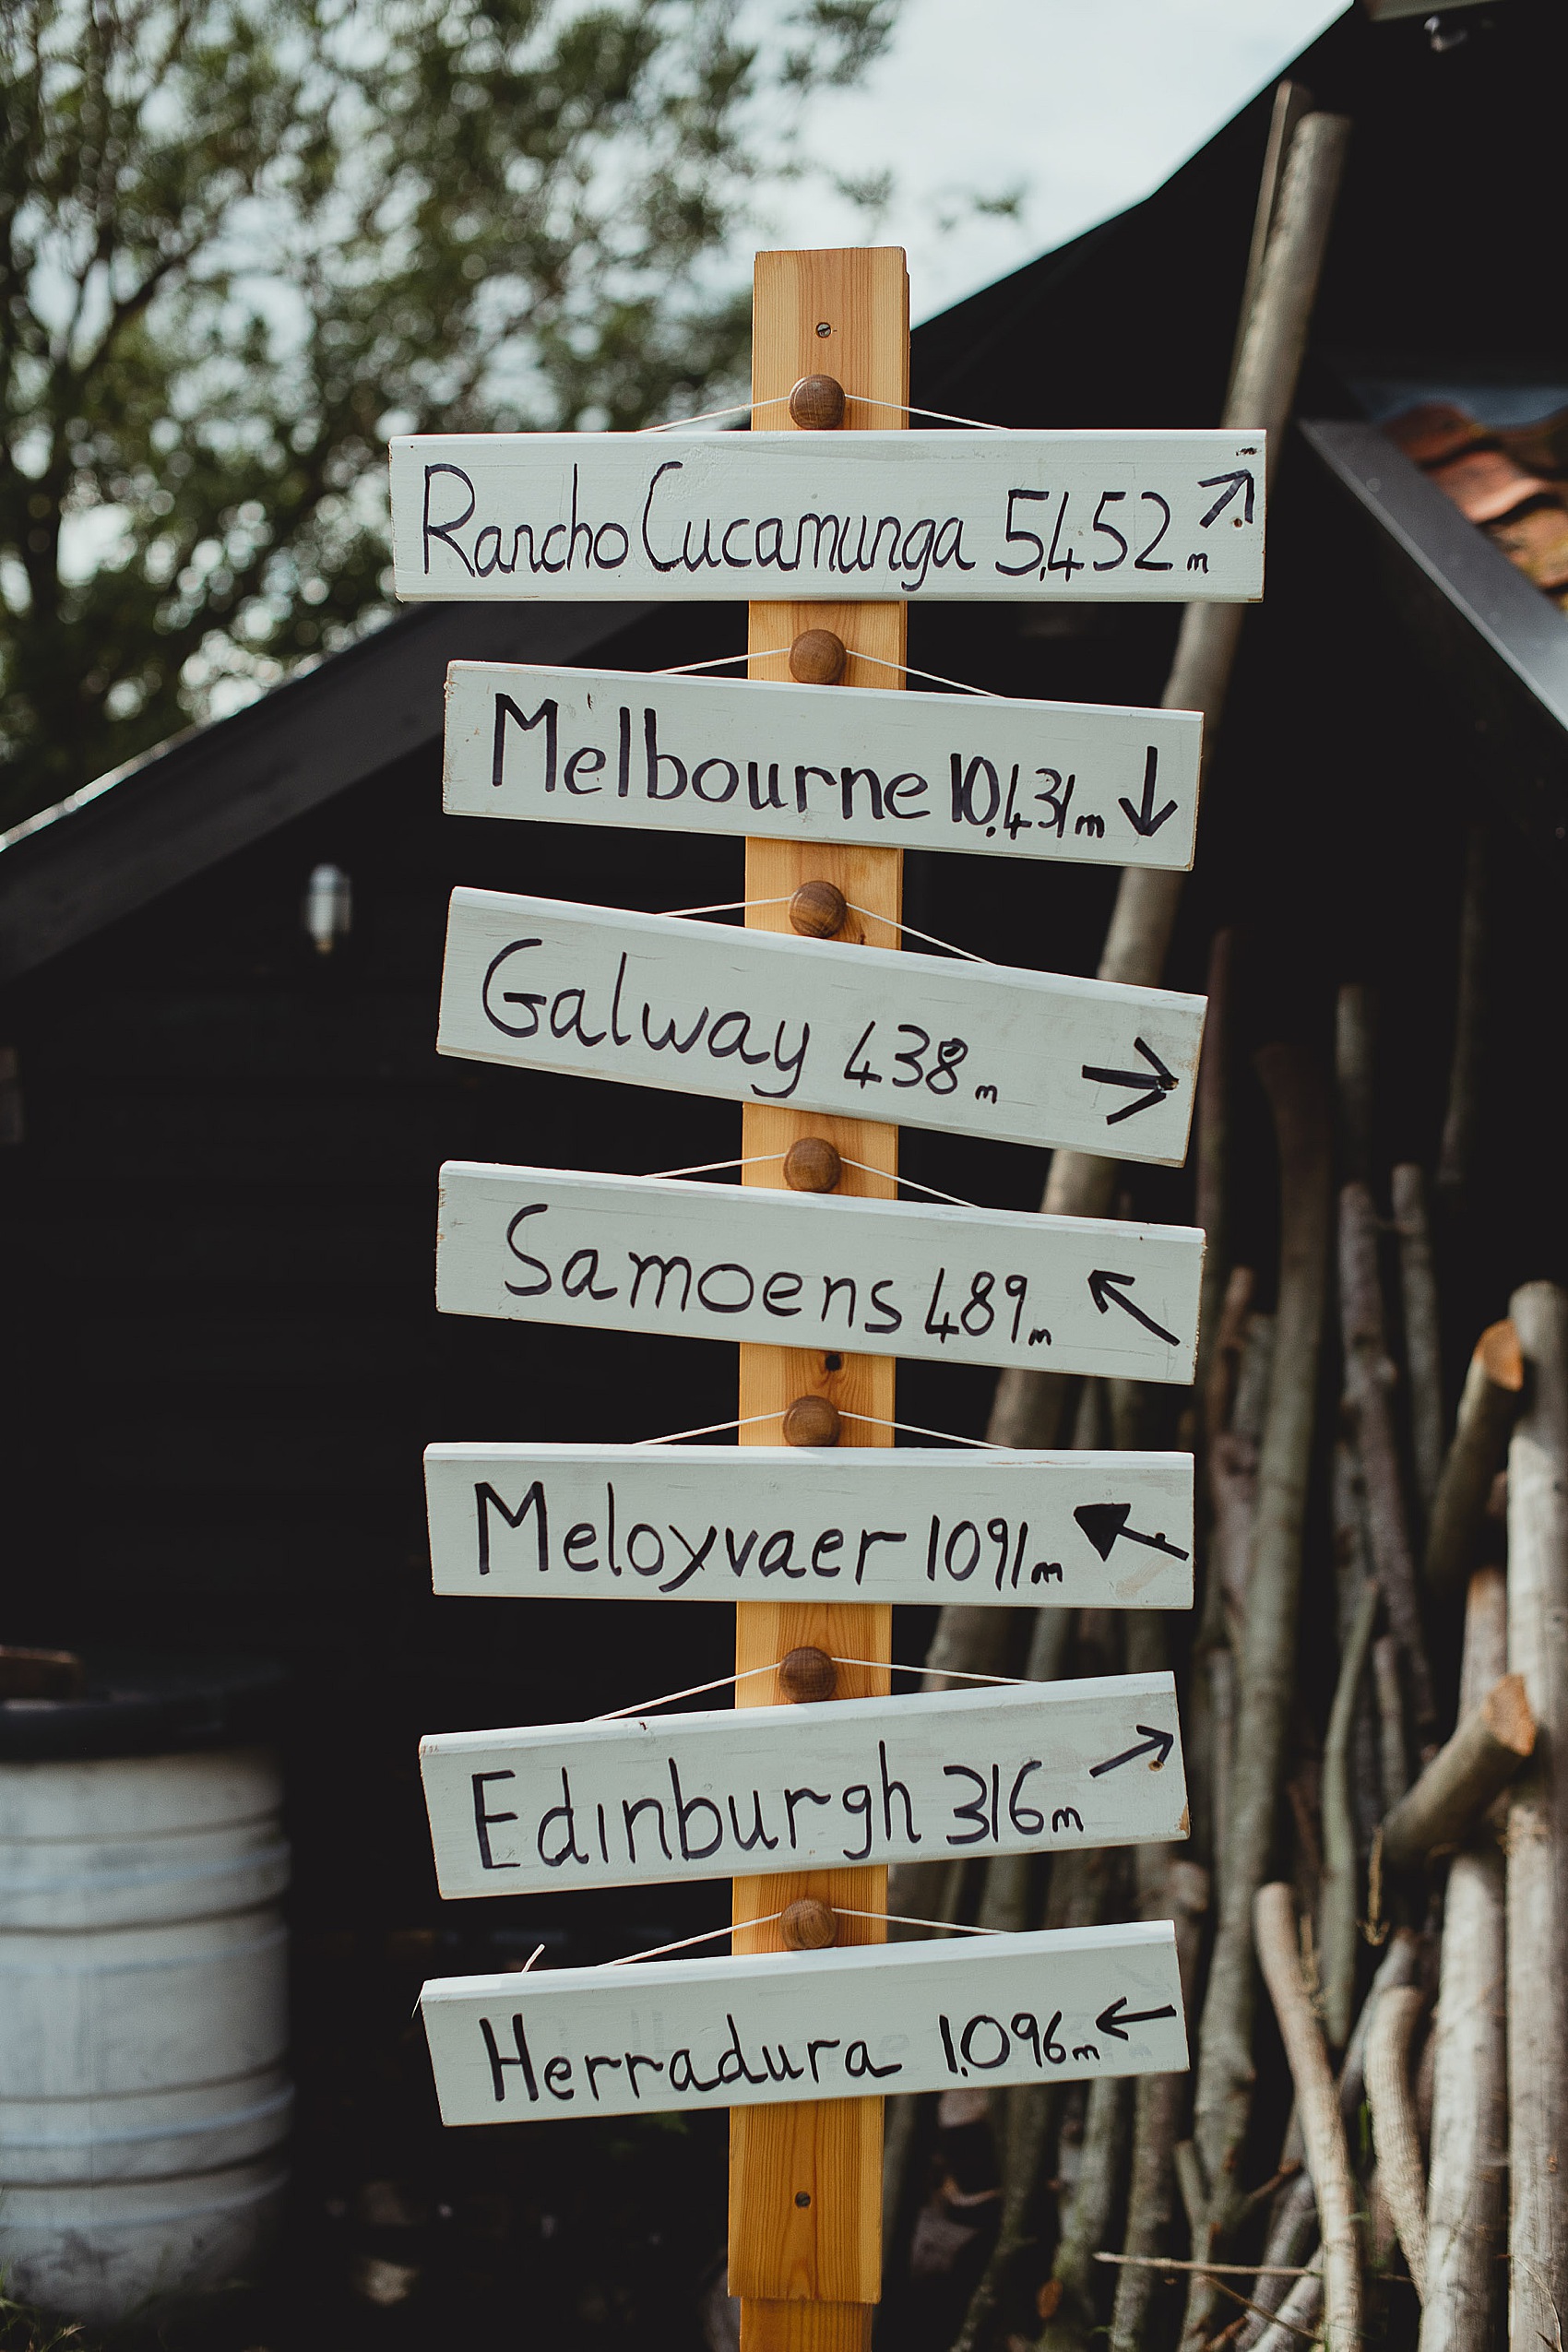 Rancho Cucamunga 5,452 m
Melbourne 10,431 m
Galway 438 m
Samoens 489 m
Meloyvaer 1091 m
Edinburgh 316 m
Herradura 1,096 m